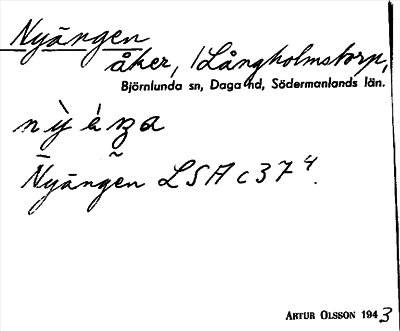 Nyängen
åker, /Långholmstorp,
Björnlunda sn, Daga hd, Södermanlands län.
Nyängen LSA c 37⁴.
ARTUR OLSSON 1943